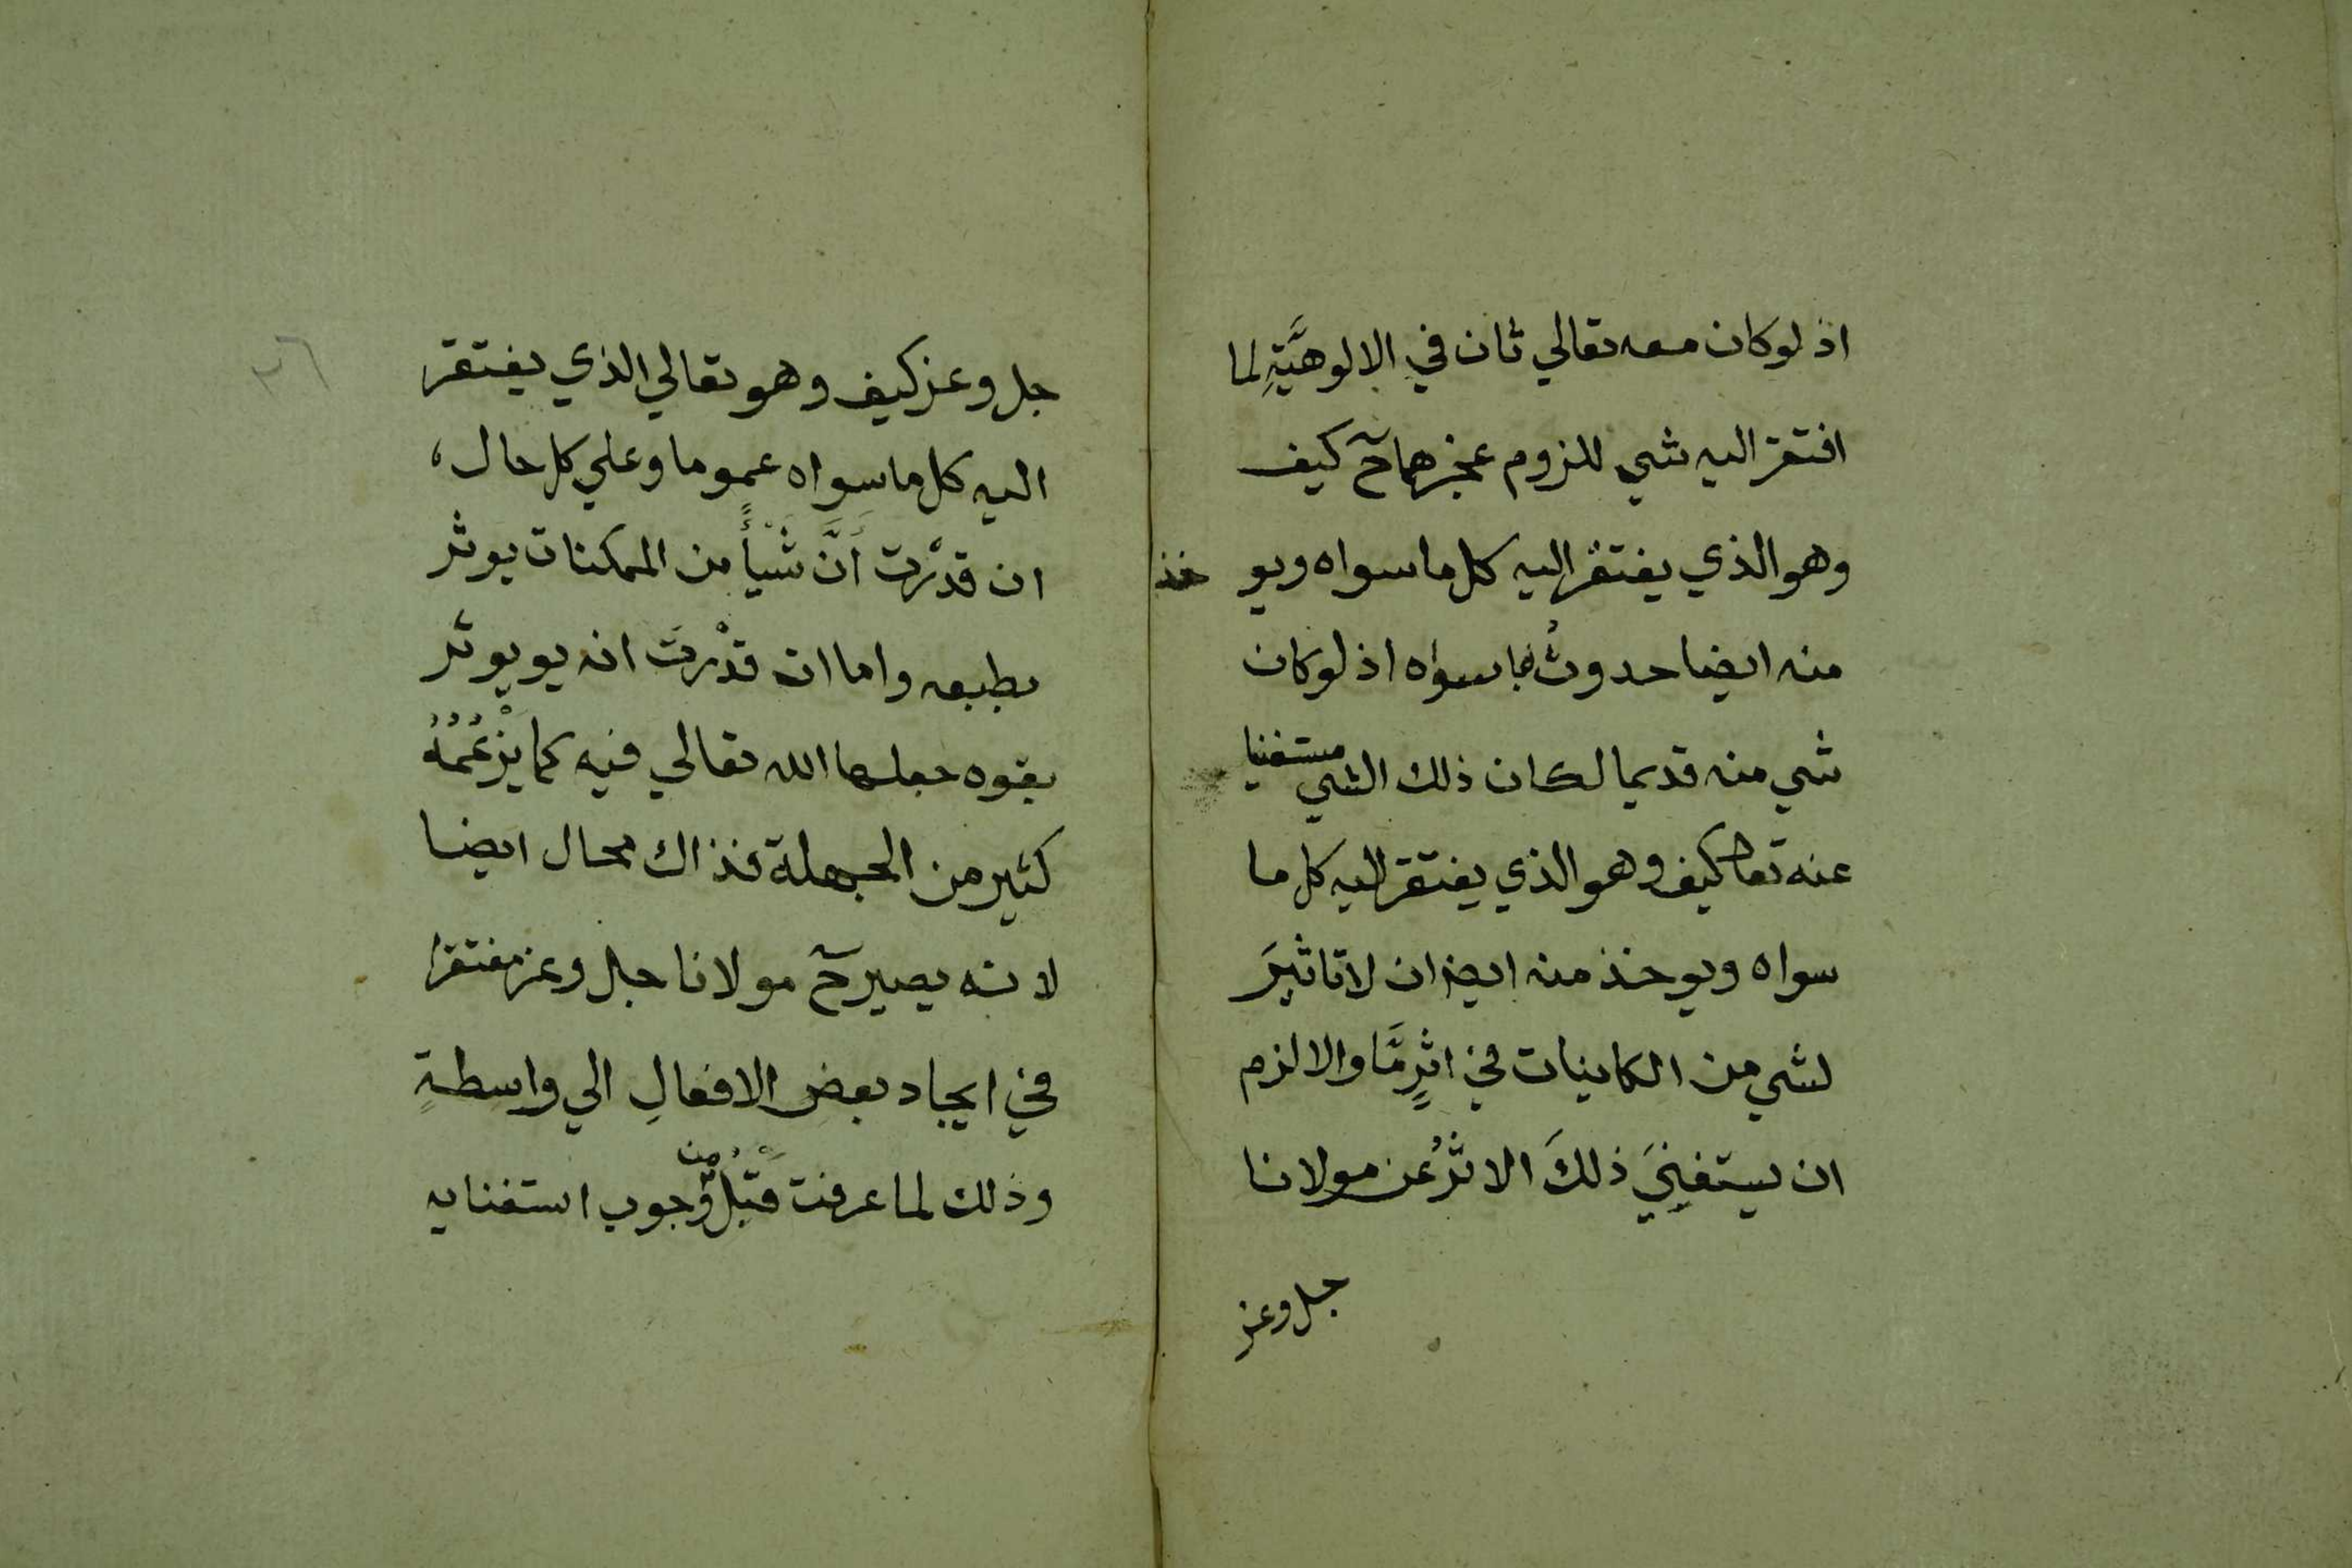 اذ لوكان معه تعالي ثان في الالوهيَّةِ لما
افتقر اليه شي للزوم عجزهما حٓ كيف
وهو الذي يفتقر اليه كل ما سواه ويو خذ
منه ايضا حدوثُ ما سواه اذ لوكان
شي منه قديما لكان ذلك الشي مستغنيا
عنه تعا كيف وهو الذي يفتقر اليه كل ما
سواه ويوخذ منه ايضا ان لا تاثيرَ
لشي من الكاينات في اثرٍ مَّا والا لزم
ان يستغنِيَ ذلكَ الاثرُ عن مولانا
جل وعز
٣٦
جل وعز كيف وهو تعالي الذي يفتقر
اليه كل ما سواه عموما وعلي كل حال،
ان قدَّرت أَنَّ شَيْأً من الممكنات يوثر
بطبعه واما ان قدَّرتَ انه يو يوثر
بقوه جعلها الله تعالي فيه كما يَزْعُمُهُ
كثير من الجهلة فذاك محال ايضا
لانه يصير حٓ مولانا جل وعز مفتقرا
في ايجاد بعض الافعالِ الي واسطةٍ
وذلك لما عرفت قَبْلُ من وجوب استغنايه